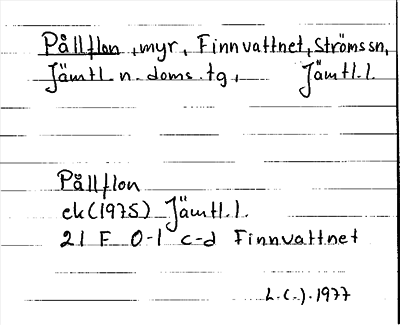 Pållflon, myr, Finnvattnet, Strömssn,
Jämtl. n. doms. tg, Jämtl. l.
Pållflon
ek (1975) Jämtl. l.
21 F 0-1 c-d Finnvattnet
L.C.). 1977